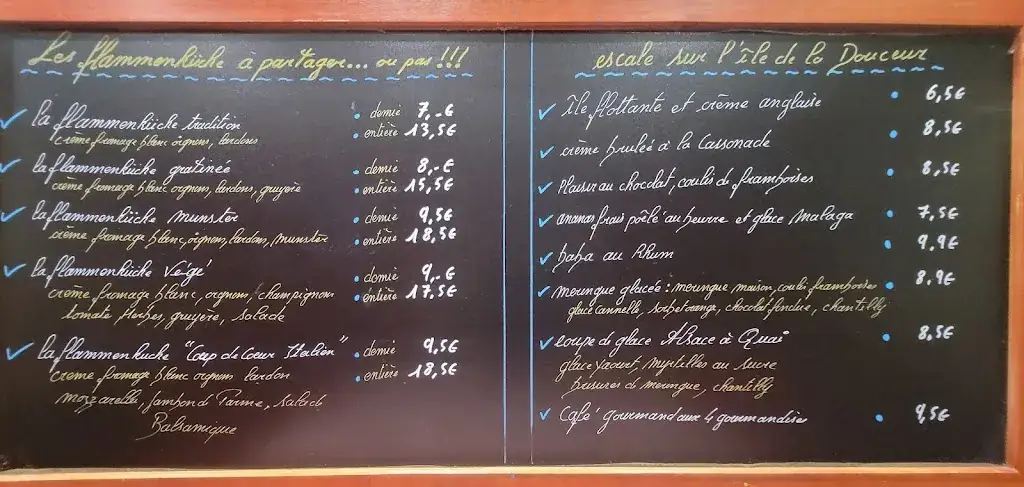 Les flammenküche à partager... ou pas !!!
la flammenküche tradition
crème fromage blanc oignons, lardons
demie 7,-€
entière 13,5€
la flammenküche gratinée
crème fromage blanc oignons, lardons, gruyère
demie 8,-€
entière 15,5€
la flammenküche munster
crème fromage blanc, oignons, lardons, munster
demie 9,5€
entière 18,5€
la flammenküche Végé
crème fromage blanc, oignons, champignons
tomate Herbes, gruyère, salade
demie 9,-€
entière 17,5€
la flammenkuche "Coup de Coeur Italien"
creme fromage blanc oignons lardon
mozzarelle, jambon de Parme, salade
Balsamique
demie 9,5€
entière 18,5€
escale sur l'île de la Douceur
île flottante et crème anglaise 6,5€
crème brulée à la Cassonade 8,5€
plaisir au chocolat, coulis de framboises 8,5€
ananas frais poêlé au beurre et glace Malaga 7,5€
baba au Rhum 9,9€
meringue glacée : meringue maison, coulis framboises 8,9€
glace cannelle, sorbet orange, chocolat fondue, chantilly
coupe de glace Alsace à Quai 8,5€
glace yaourt, myrtilles au sucre
brisures de meringue, chantilly
Café gourmand aux 4 gourmandises 9,5€